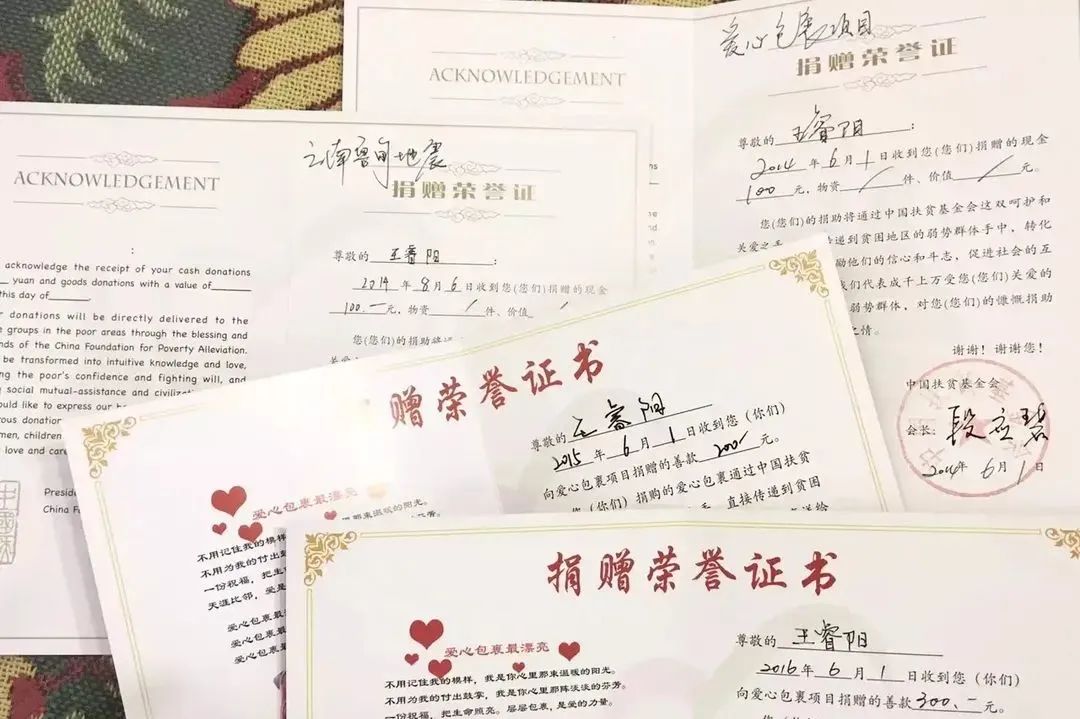 爱心包裹项目
ACKNOWLEDGEMENT
捐赠荣誉证
尊敬的 王睿阳 :
2014 年 6 月 1 日收到您(您们)捐赠的现金
100 元，物资 / 件、价值 / 元。
您(您们)的捐助将通过中国扶贫基金会这双呵护和
关爱之手
递到贫困地区的弱势群体手中，转化
励他们的信心和斗志，促进社会的互
我们代表成千上万受您(您们)关爱的
弱势群体，对您(您们)的慷慨捐助
之情。
谢谢！谢谢您！
中国扶贫基金会
会长: 段应碧
2014年 6月 1日
云南鲁甸地震
ACKNOWLEDGEMENT
捐赠荣誉证
:
acknowledge the receipt of your cash donations
yuan and goods donations with a value of
this day of
donations will be directly delivered to the
groups in the poor areas through the blessing and
nds of the China Foundation for Poverty Alleviation.
be transformed into intuitive knowledge and love,
ing the poor's confidence and fighting will, and
social mutual-assistance and
ould like to express our
rous donation
men, children
love and care
Presid
China Fo
尊敬的 王睿阳 :
2014 年 8 月 6 日收到您(您们)捐赠的现金
100.- 元，物资 / 件、价值 /
您(您们)的捐助将通
赠荣誉证书
尊敬的 王睿阳
2015 年 6 月 1 日收到您（你们）
向爱心包裹项目捐赠的善款 200- 元。
（你们）捐购的爱心包裹通过中国扶贫
直接传递到贫困
爱心包裹最漂亮
不用记住我的模样，
那束温暖的阳光。
不用为我的付出鼓
一份祝福，把生
天涯比邻，爱是
爱心包裹最
爱心包裹
爱心包裹
捐赠荣誉证书
尊敬的 王睿阳
2016 年 6 月 1 日收到您（你们）
向爱心包裹项目捐赠的善款 300.- 元
爱心包裹最漂亮
不用记住我的模样，我是你心里那束温暖的阳光。
不用为我的付出鼓掌，我是你心里那阵淡淡的芬芳。
一份祝福，把生命照亮。层层包裹，是爱的力量。